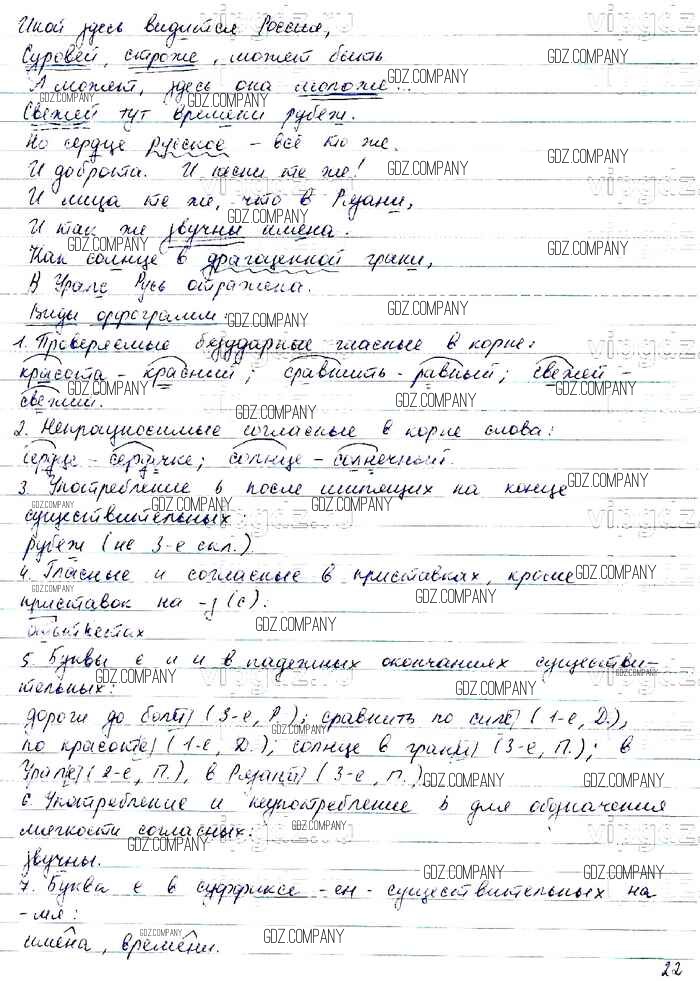 Иной здесь видится Россия,
Суровей, строже, может быть
А может, здесь она моложе...
Свежей тут времени рубеж.
Но сердце русское – всё то же.
И доброта. И песни те же!
И лица те же, что в Рязани,
И так же звучны имена.
Как солнце в драгоценной грани,
В Урале Русь отражена.
Виды орфограмм:
1. Проверяемые безударные гласные в корне:
красота – красный; сравнить – равный; свежей –
свежий.
2. Непроизносимые согласные в корне слова:
сердце – сердечке; солнце – солнечный.
3. Употребление ь после шипящих на конце
существительных:
рубеж (не 3-е скл.)
4. Гласные и согласные в приставках, кроме
приставок на -з (с):
5. Буквы е и и в падежных окончаниях существи-
тельных:
дороги до боли (3-е, Р.); сравнить по силе (1-е, Д.),
по красоте (1-е, Д.); солнце в грани (3-е, П.); в
Урале (2-е, П.), в Рязани (3-е, П.)
6. Употребление и неупотребление ь для обозначения
мягкости согласных:
звучны.
7. Буква е в суффиксе -ен- существительных на
-мя:
имена, времени.
22
GDZ.COMPANY
vipgdz.ru